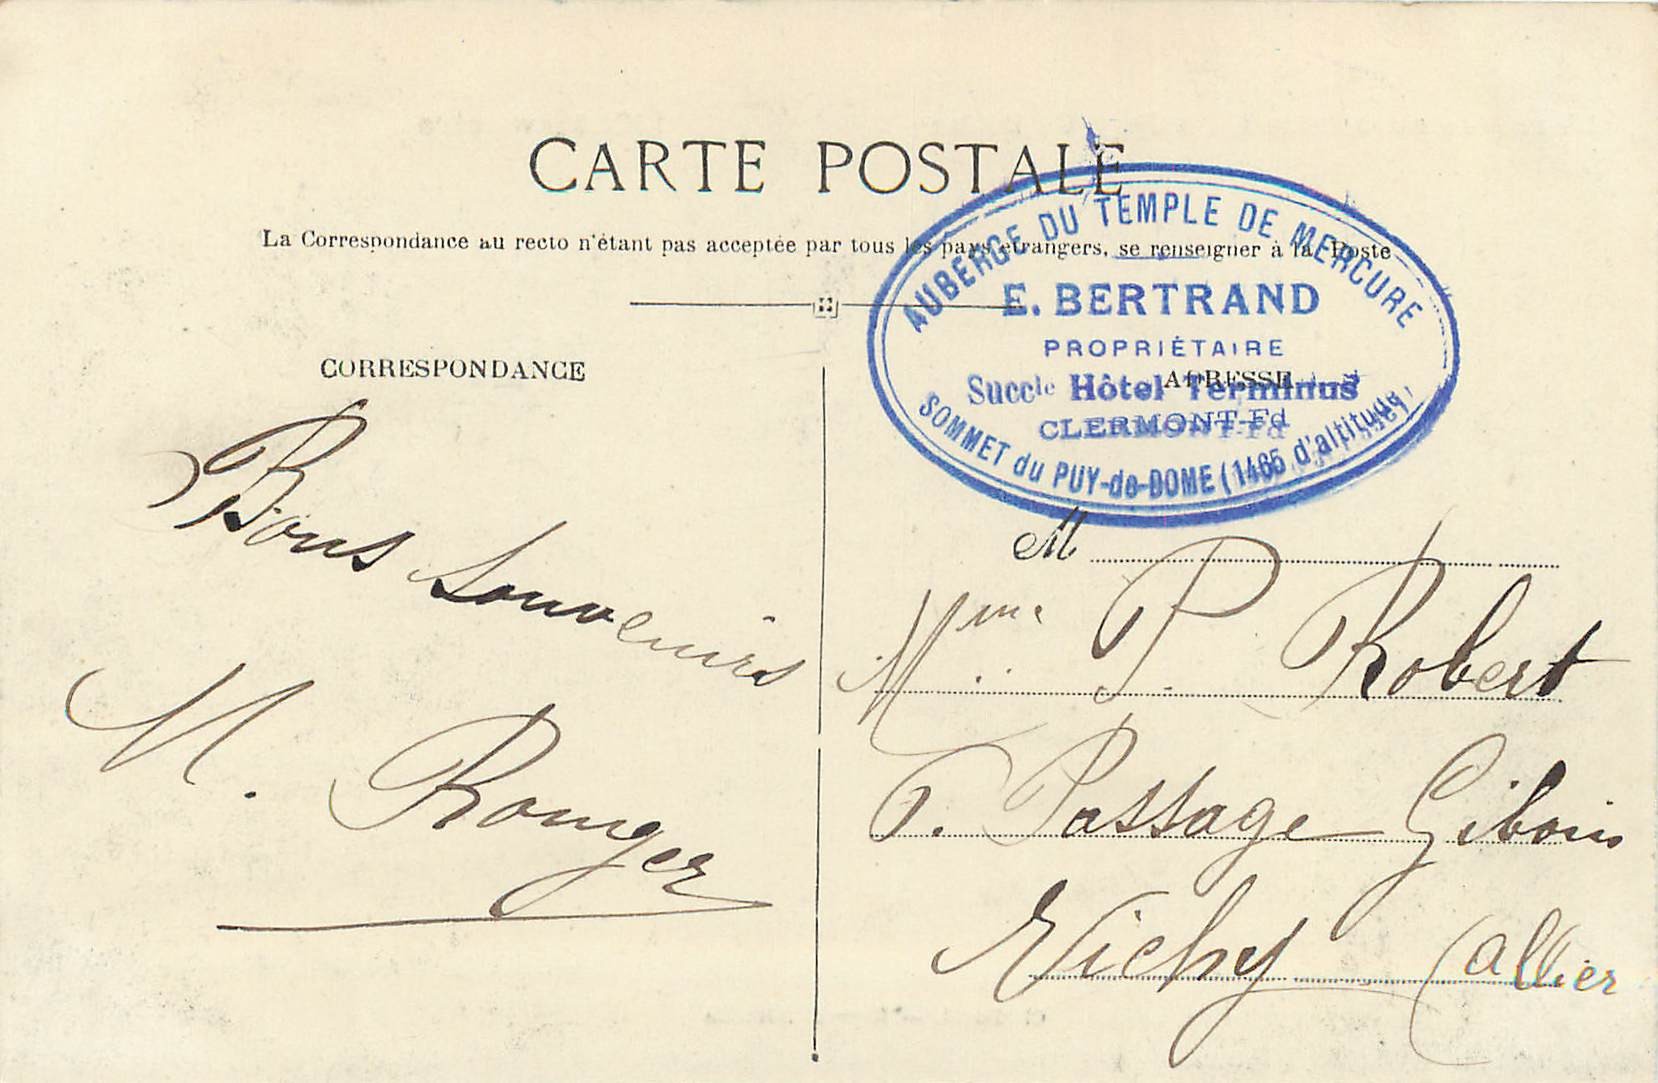 CARTE POSTALE
La Correspondance au recto n'étant pas acceptée par tous les pays étrangers, se renseigner à la Poste
AUBERGE DU TEMPLE DE MERCURE
E. BERTRAND
PROPRIÉTAIRE
Succle Hôtel Terminus
CLERMONT-Fd
SOMMET du PUY-de-DOME (1465 d'altitude)
CORRESPONDANCE
ADRESSE
Bons Souvenirs
M. Rouger
M
Mme P. Robert
P. Passage Giboin
Vichy (allier